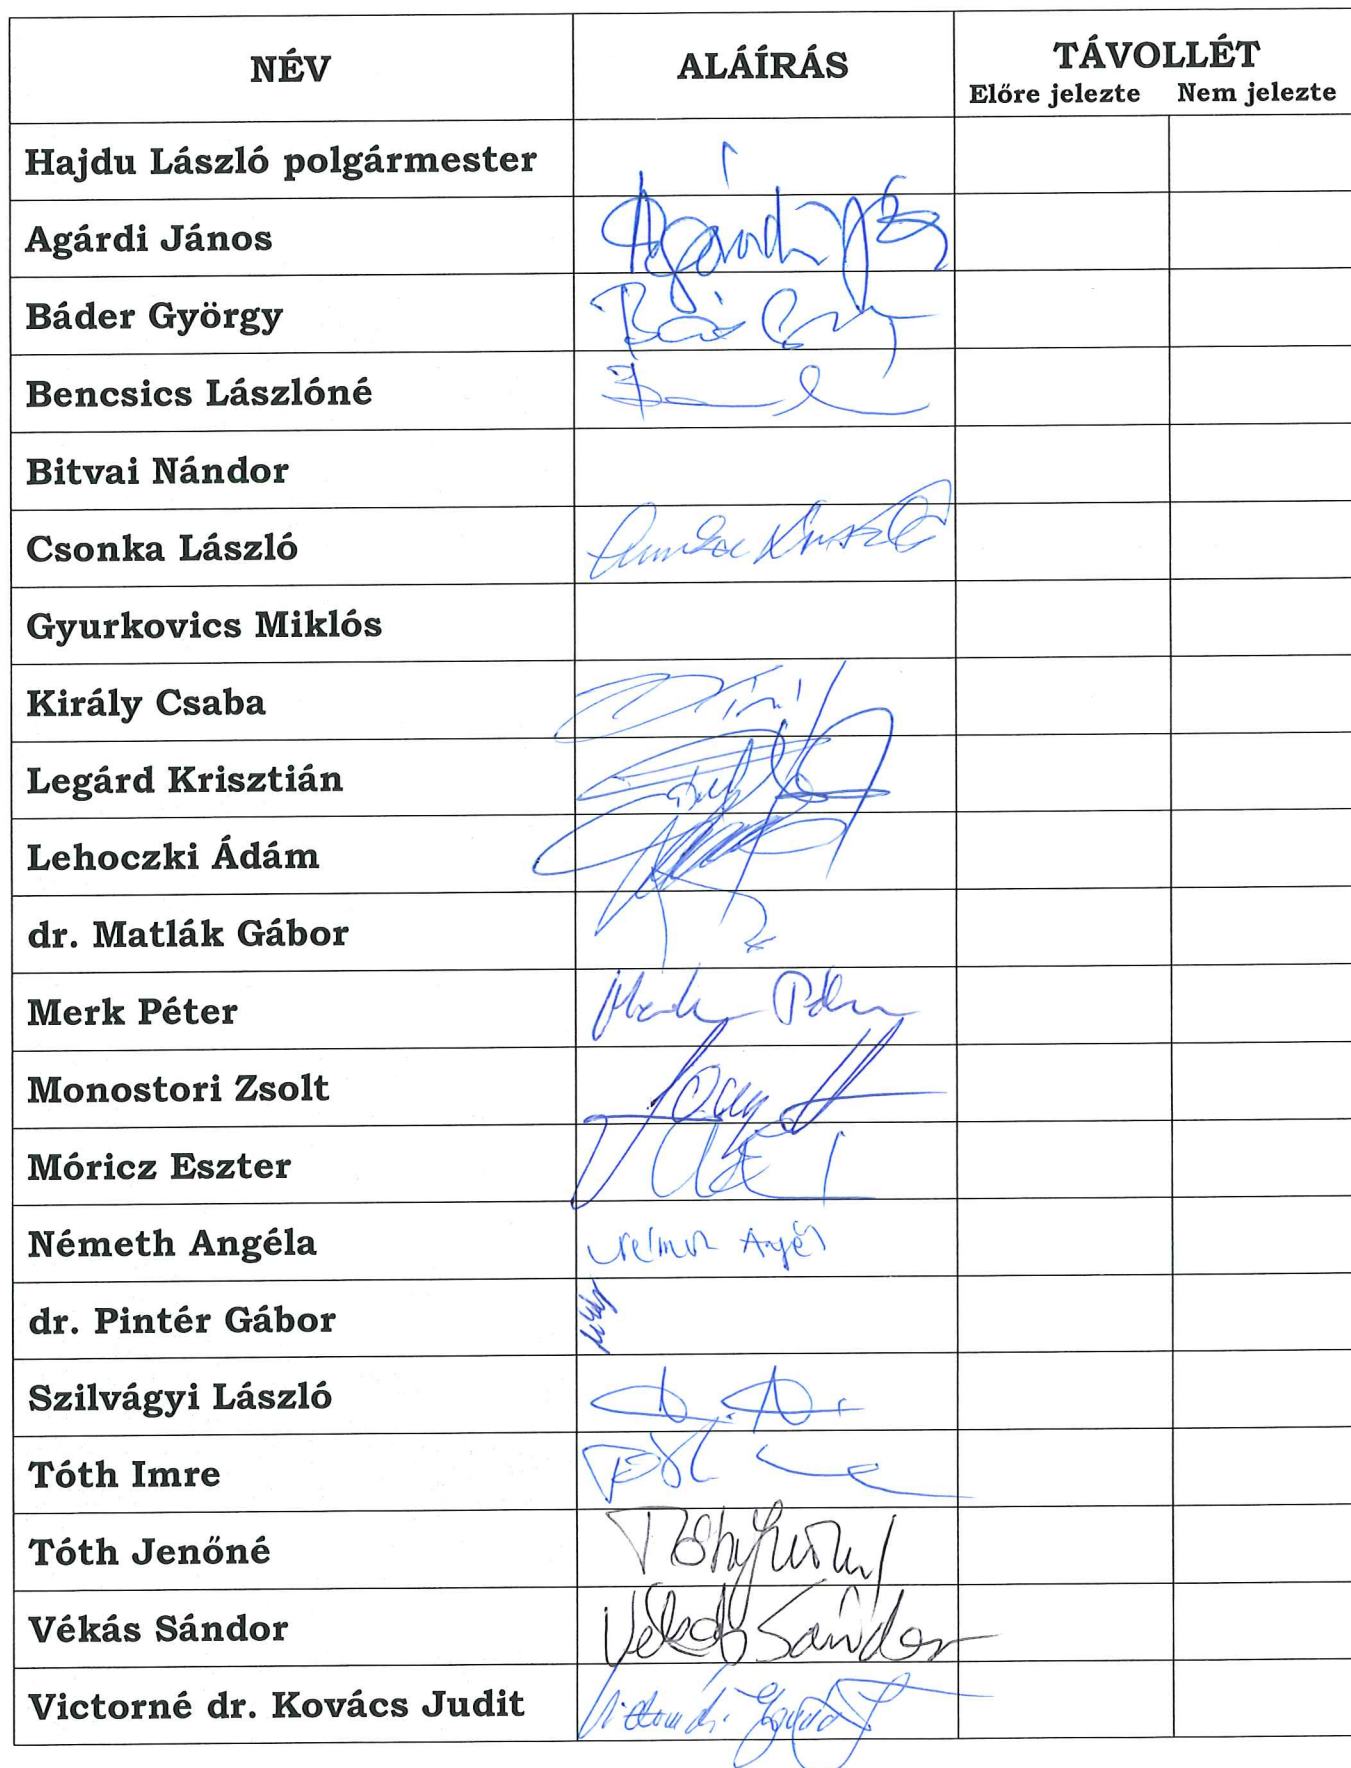 NÉV ALÁÍRÁS TÁVOLLÉT
Előre jelezte Nem jelezte
Hajdu László polgármester
Agárdi János Agárdi
Báder György
Bencsics Lászlóné
Bitvai Nándor
Csonka László Csonka László
Gyurkovics Miklós
Király Csaba
Legárd Krisztián
Lehoczki Ádám
dr. Matlák Gábor
Merk Péter Merk Péter
Monostori Zsolt
Móricz Eszter
Németh Angéla Németh Angéla
dr. Pintér Gábor
Szilvágyi László
Tóth Imre Tóth
Tóth Jenőné
Vékás Sándor Vékás Sándor
Victorné dr. Kovács Judit